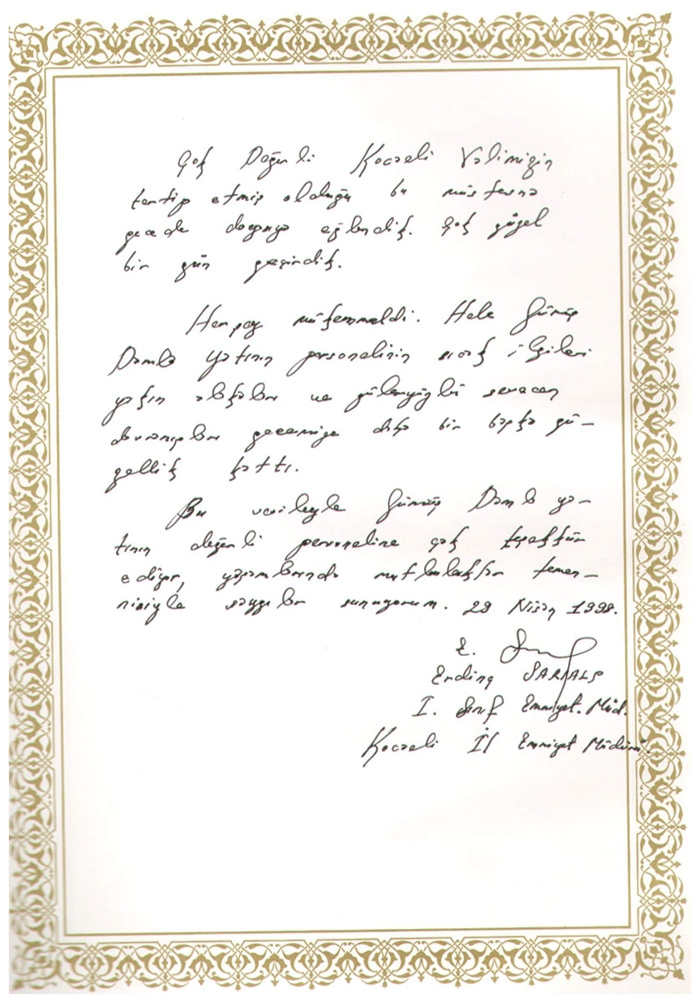 Çok Değerli Kocaeli Valimizin
tertip etmiş olduğu bu müstesna
gecede doyasıya eğlendik. Çok güzel
bir gün geçirdik.
Herşey mükemmeldi. Hele Gümüş
Damla yatının personelinin sıcak ilgileri
yakın alakaları ve güleryüzlü sevecen
davranışları gecemize daha bir başka gü-
zellik kattı.
Bu vesileyle Gümüş Damla ya-
tının değerli personeline çok teşekkür
ediyor, yaşamlarında mutluluklar temen-
nisiyle saygılar sunuyorum. 29 Nisan 1998.
E.
Erdinç SARIALP
I. Sınıf Emniyet. Müd.
Kocaeli İl Emniyet Müdürü.